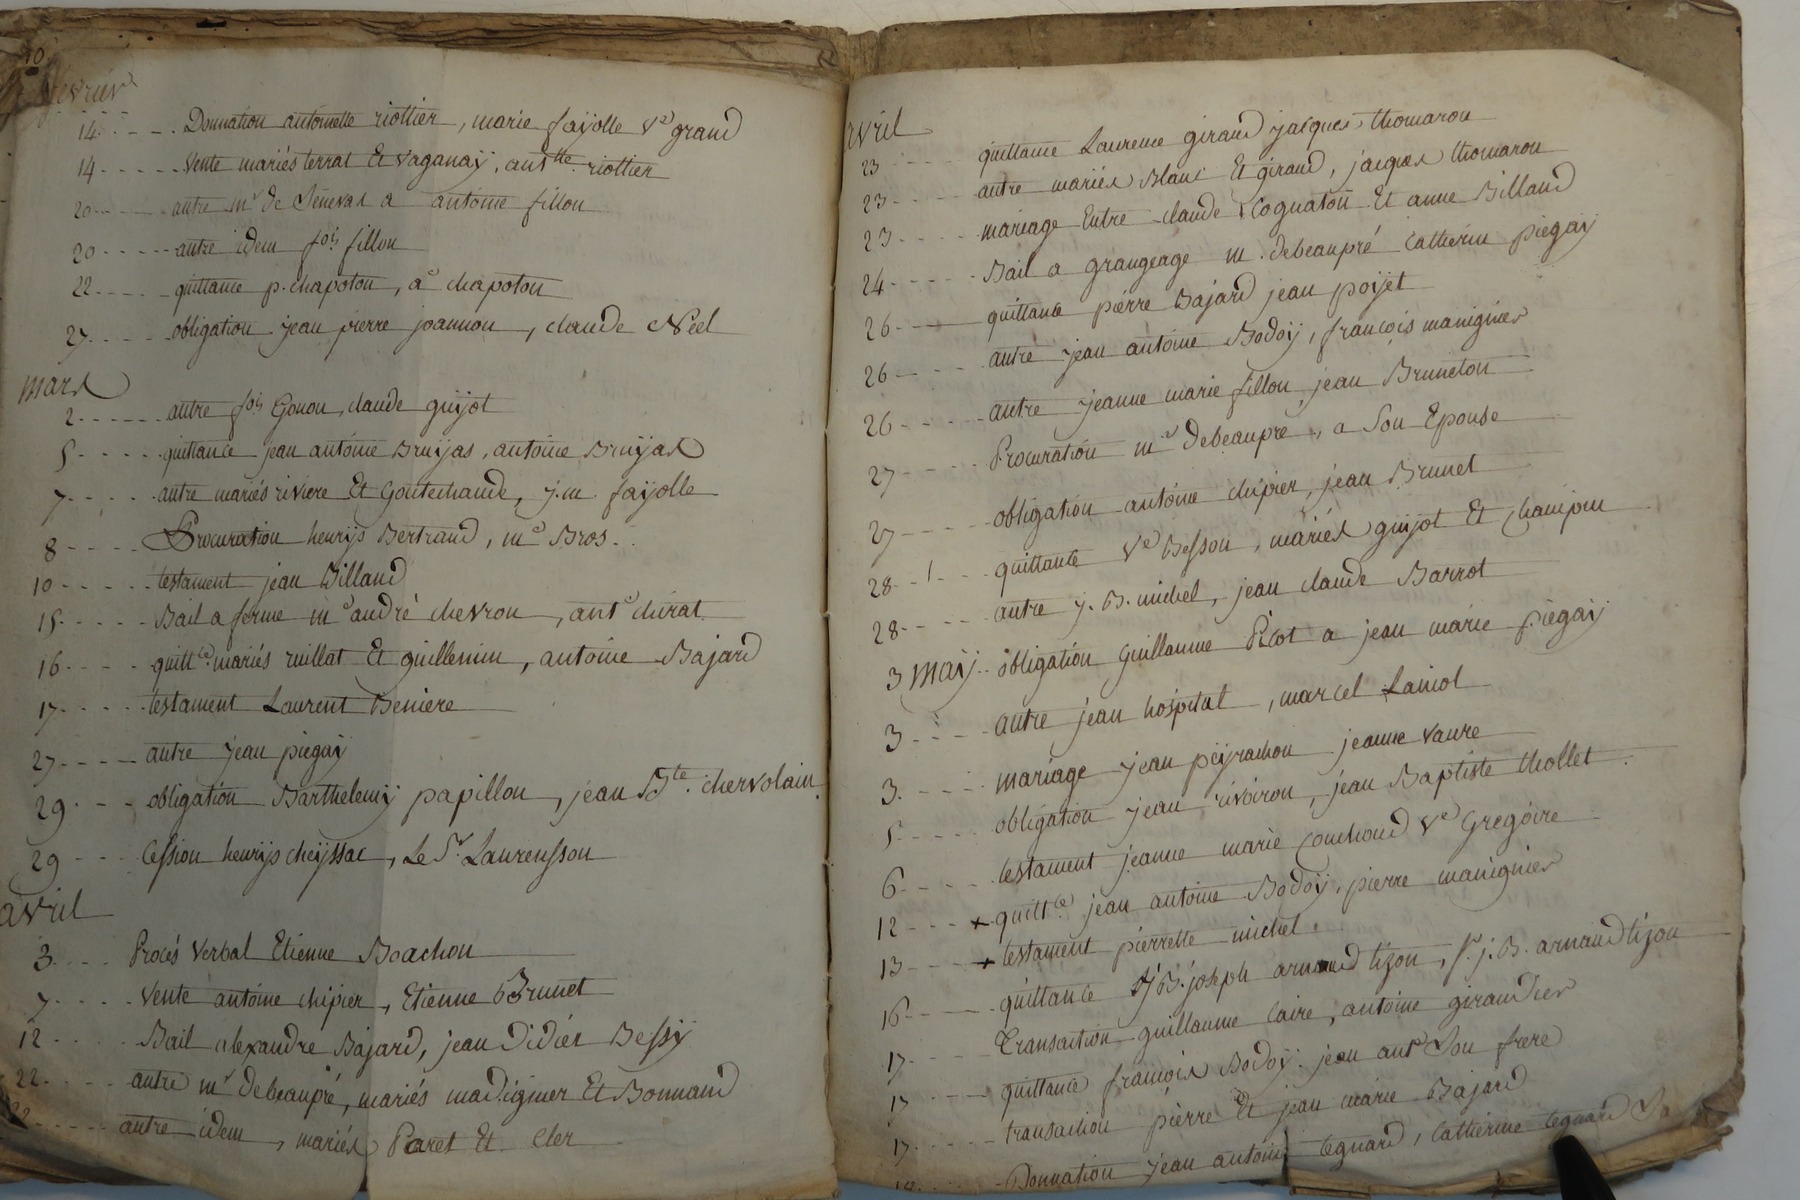 10
février
14 ..... Donnation antoinette riottier, marie fayolle Ve grand
14 ..... vente mariés terrat Et vaganaÿ, antte riottier
20 ..... autre mr de Senevas a antoine fillon
20 ..... autre idem fois fillon
22 ..... quittance p. chapoton, ae chapoton
27 ..... obligation jean pierre joannon, claude Néel
mars
2 ..... autre fois Gonon, claude guÿot
5 ..... quittance jean antoine Bruÿas, antoine Bruÿas
7 ..... autre mariés riviere Et Goutechaude, j. m. faÿolle
8 ..... Procuration henrÿs Bertrand, me Bros.
10 ..... testament jean Billand
15 ..... Bail a ferme me andré chevron, ante chirat
16 ..... quittce mariés ruillat Et guillemin, antoine Bajard
17 ..... testament Laurent Beniere
27 ..... autre jean piegaÿ
29 ... obligation Barthelemÿ papillon, jean Bte chervolain
29 ... Cession henrÿs cheÿssac, Le Sr Laurensson
avril
3 .... Procés verbal Etienne Boachon
7 ..... vente antoine chipier, Etienne Brunet
12 ..... Bail alexandre Bajard, jean Didier Bessÿ
22 ..... autre mr debeaupré, mariés madignier Et Bonnand
22 ..... autre idem, mariés Paret Et Cler
avril
23 ..... quittance Laurence giraud jacques thomaron
23 ..... autre mariés Blanc Et giraud, jacques thomaron
23 ..... mariage Entre claude Cognaton Et anne Billand
24 ..... Bail a grangeage m. debeaupré Catherin piegaÿ
26 ..... quittance pierre Bajard jean poÿet
26 ..... autre jean antoine Bodoÿ, françois manignier
26 ..... autre jeanne marie fillon, jean Bruneton
27 ..... Procuration mr debeaupré, a Son Epouse
27 ..... obligation antoine chipier, jean Brunet
28 ..... quittance Ve Besson, mariés guÿot Et
28 ..... autre j. B. michel, jean claude Barrot
3 maÿ .. obligation Guillaume Picot a jean marie piegaÿ
3 ..... autre jean hospital, marcel
3 ..... mariage jean peÿrachon jeanne vaure
5 ..... obligation jean rivoiron, jean Baptiste thollet
6 ..... testament jeanne marie Couchoud Ve Gregoire
12 ... + quittce jean antoine Bodoÿ, pierre manignier
13 ... + testament pierrette michel
16 ..... quittance joseph arnaud tizon, Sr j. B. arnaud tizon
17 ..... Transaction guillaume Caire, antoine giraudier
17 ..... quittance françois Bodoÿ jean ante Son frere
17 ..... transaction pierre Et jean marie Bajard
18 ..... Donnation jean antoine Cognard, Catherine Cognard Sa